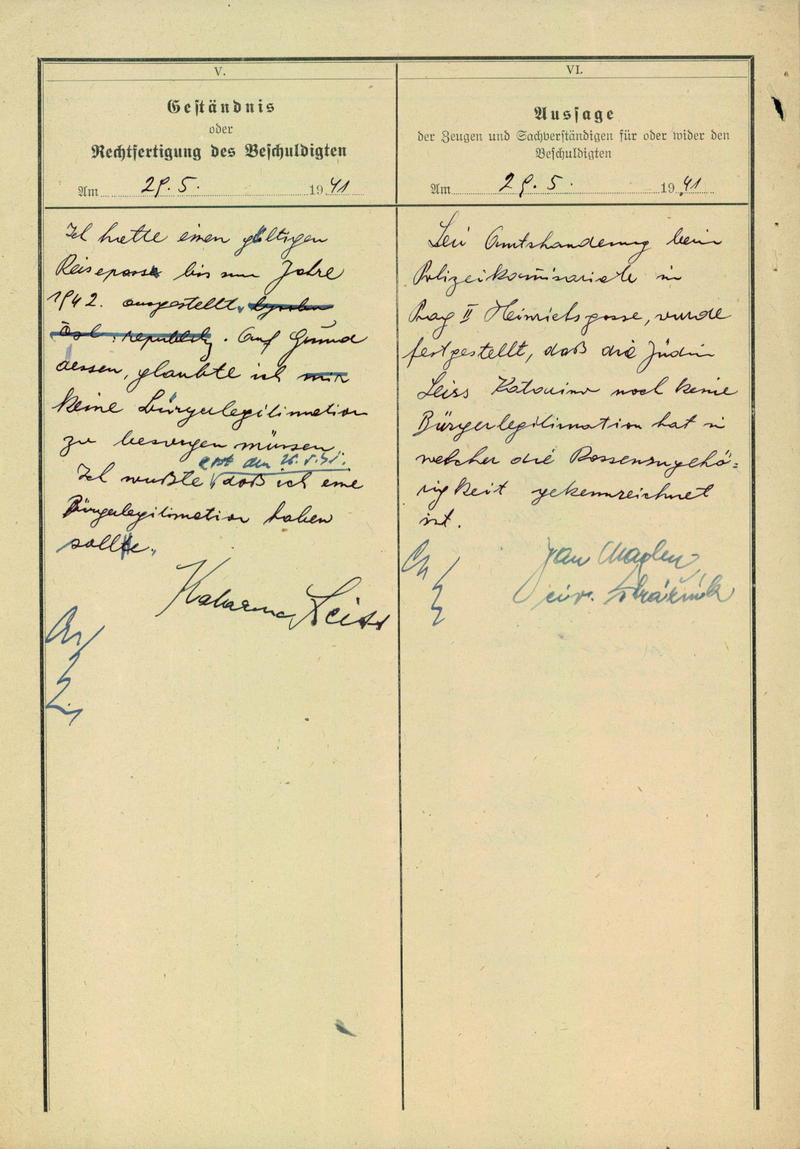 V.
Geständnis
oder
Rechtfertigung des Beschuldigten
Am 29. 5. 1941
Ich hatte einen gültigen
Reisepass bis zum Jahre
1942. ausgestellt
republik. Auf Grund
dessen, glaubte ich mir
keine Bürgerlegitimation
zu besorgen müssen.
erst den
Ich wußte daß ich eine
Bürgerlegitimation haben
sollte.
Katarina Leiss
VI.
Aussage
der Zeugen und Sachverständigen für oder wider den
Beschuldigten
Am 29. 5. 1941
Bei Amtshandlung beim
Polizeikommisariate in
Prag II Heinrichsgasse, wurde
festgestellt, daß die Jüdin
Leiss Katarina noch keine
Bürgerlegitimation hat in
welcher die Rassenzugehö=
rigkeit gekennzeichnet
ist.
Jan
civ. strážník